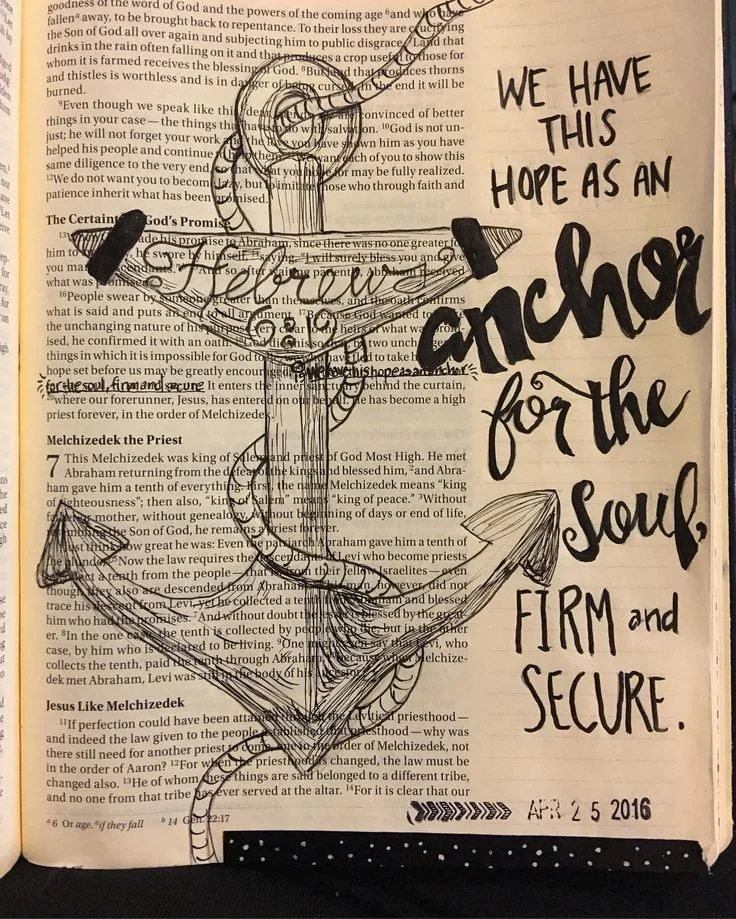 goodness of the word of God and the powers of the coming age ⁶and who have
fallenᵃ away, to be brought back to repentance. To their loss they are crucifying
the Son of God all over again and subjecting him to public disgrace. ⁷Land that
drinks in the rain often falling on it and that produces a crop useful to those for
whom it is farmed receives the blessing of God. ⁸But land that produces thorns
and thistles is worthless and is in danger of being cursed. In the end it will be
burned.
⁹Even though we speak like this, dear friends, we are convinced of better
things in your case — the things that have to do with salvation. ¹⁰God is not un-
just; he will not forget your work and the love you have shown him as you have
helped his people and continue to help them. ¹¹We want each of you to show this
same diligence to the very end, so that what you hope for may be fully realized.
¹²We do not want you to become lazy, but to imitate those who through faith and
patience inherit what has been promised.
The Certainty of God's Promise
¹³ made his promise to Abraham, since there was no one greater for
him to swear by, he swore by himself, ¹⁴saying, "I will surely bless you and give
you many descendants." ¹⁵And so after waiting patiently, Abraham received
what was promised.
Hebrews
6:19
¹⁶People swear by someone greater than themselves, and the oath confirms
what is said and puts an end to all argument. ¹⁷Because God wanted to make
the unchanging nature of his purpose very clear to the heirs of what was prom-
ised, he confirmed it with an oath. ¹⁸God did this so that, by two unchangeable
things in which it is impossible for God to lie, we who have fled to take hold of the
hope set before us may be greatly encouraged. ¹⁹We have this hope as an anchor
for the soul, firm and secure. It enters the inner sanctuary behind the curtain,
²⁰where our forerunner, Jesus, has entered on our behalf. He has become a high
priest forever, in the order of Melchizedek.
Melchizedek the Priest
7 This Melchizedek was king of Salem and priest of God Most High. He met
Abraham returning from the defeat of the kings and blessed him, ²and Abra-
ham gave him a tenth of everything. First, the name Melchizedek means "king
of righteousness"; then also, "king of Salem" means "king of peace." ³Without
father or mother, without genealogy, without beginning of days or end of life,
resembling the Son of God, he remains a priest forever.
⁴Just think how great he was: Even the patriarch Abraham gave him a tenth of
the plunder! ⁵Now the law requires the descendants of Levi who become priests
to collect a tenth from the people — that is, from their fellow Israelites — even
though they also are descended from Abraham. ⁶This man, however, did not
trace his descent from Levi, yet he collected a tenth from Abraham and blessed
him who had the promises. ⁷And without doubt the lesser is blessed by the great-
er. ⁸In the one case, the tenth is collected by people who die; but in the other
case, by him who is declared to be living. ⁹One might even say that Levi, who
collects the tenth, paid the tenth through Abraham, ¹⁰because when Melchize-
dek met Abraham, Levi was still in the body of his ancestor.
Jesus Like Melchizedek
¹¹If perfection could have been attained through the Levitical priesthood —
and indeed the law given to the people established that priesthood — why was
there still need for another priest to come, one in the order of Melchizedek, not
in the order of Aaron? ¹²For when the priesthood is changed, the law must be
changed also. ¹³He of whom these things are said belonged to a different tribe,
and no one from that tribe has ever served at the altar. ¹⁴For it is clear that our
ᵃ 6 Or age, ⁶if they fall ᵇ 14 Gen. 22:17
WE HAVE
THIS
HOPE AS AN
anchor
for the
soul,
FIRM and
SECURE.
APR 25 2016